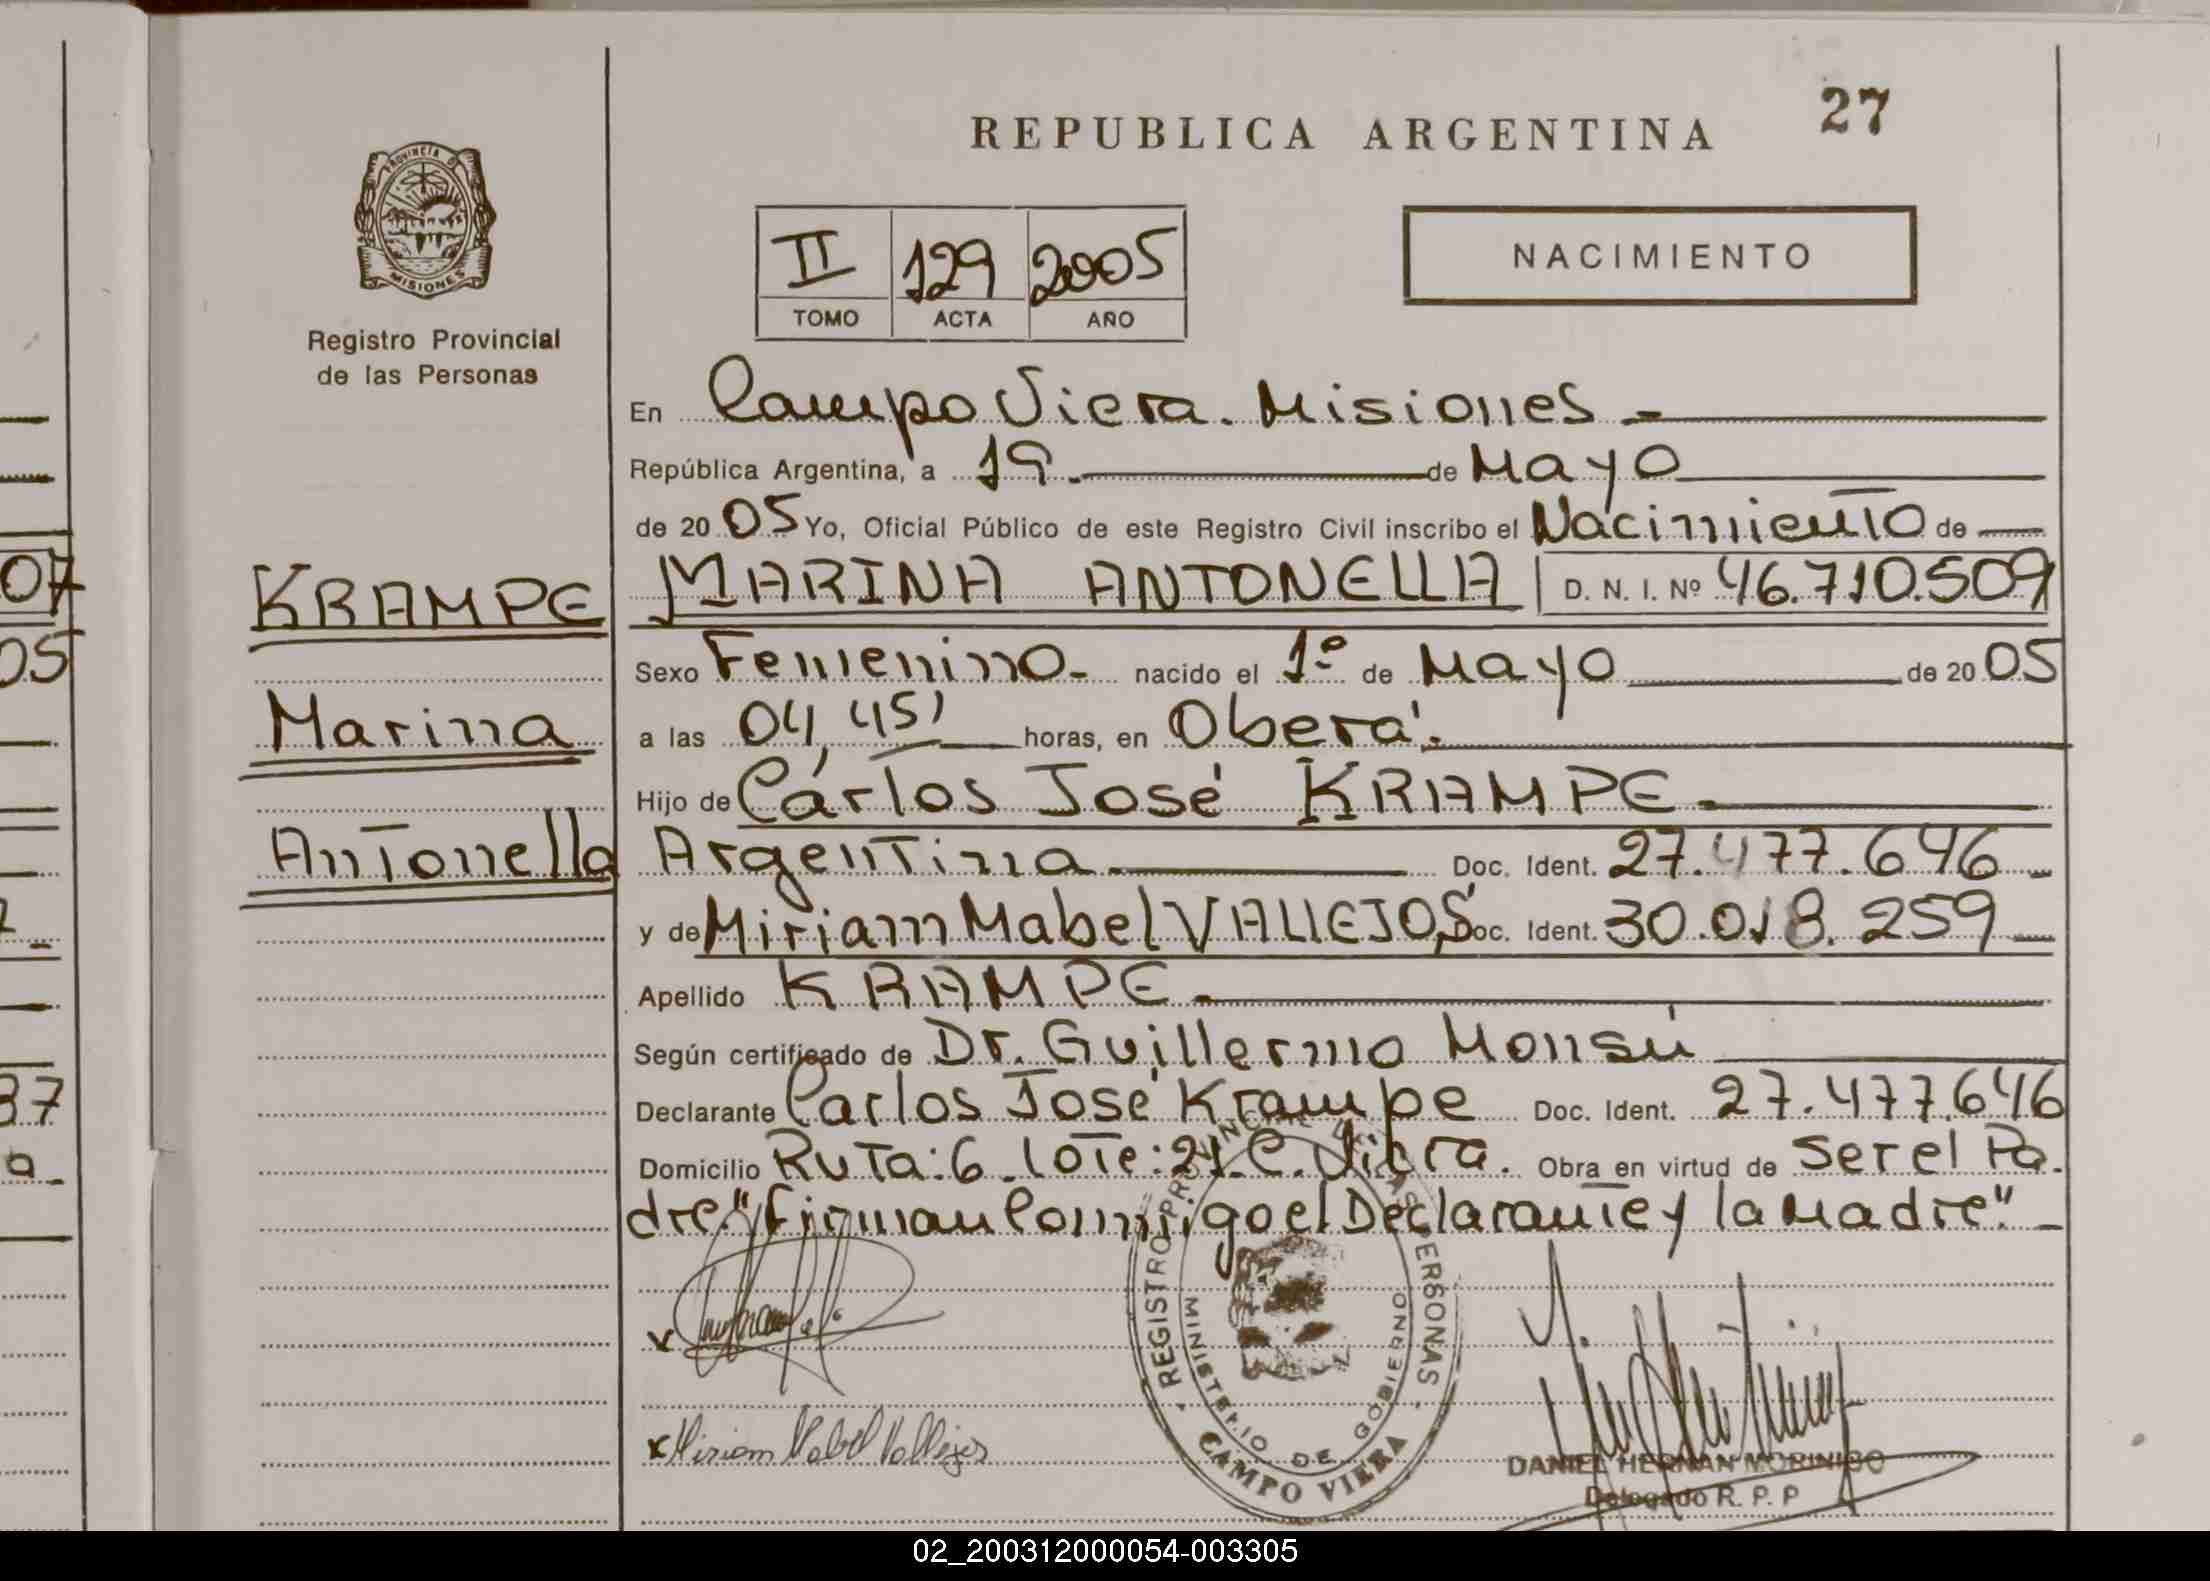 REPUBLICA ARGENTINA
27
PROVINCIA D
MISIONES
Registro Provincial
de las Personas
II 129 2005
TOMO ACTA AÑO
NACIMIENTO
En Campo Viera. Misiones
República Argentina, a 19 de Mayo
de 2005 Yo, Oficial Público de este Registro Civil inscribo el Nacimiento de
KRAMPE
MARINA ANTONELLA D. N. I. Nº 46.710.509
Sexo Femenino nacido el 1º de Mayo de 2005
Marina
a las 04,45' horas, en Oberá.
Hijo de Carlos José KRAMPE
Antonella
Argentina Doc. Ident. 27.477.646
y de Miriam Mabel VALLEJOS Doc. Ident. 30.018.259
Apellido KRAMPE
Según certificado de Dr. Guillermo Monsú
Declarante Carlos José Krampe Doc. Ident. 27.477.646
Domicilio Ruta: 6 Lote: 21. C. Viera. Obra en virtud de ser el Pa.
dre." Firman Conmigo el Declarante y la Madre".
REGISTRO PROVINCIAL DE LAS PERSONAS
MINISTERIO DE GOBIERNO
CAMPO VIERA
x Miriam Mabel Vallejos
DANIEL HERNAN MORINIGO
Delegado R. P. P
07
05
37
a
02_200312000054-003305